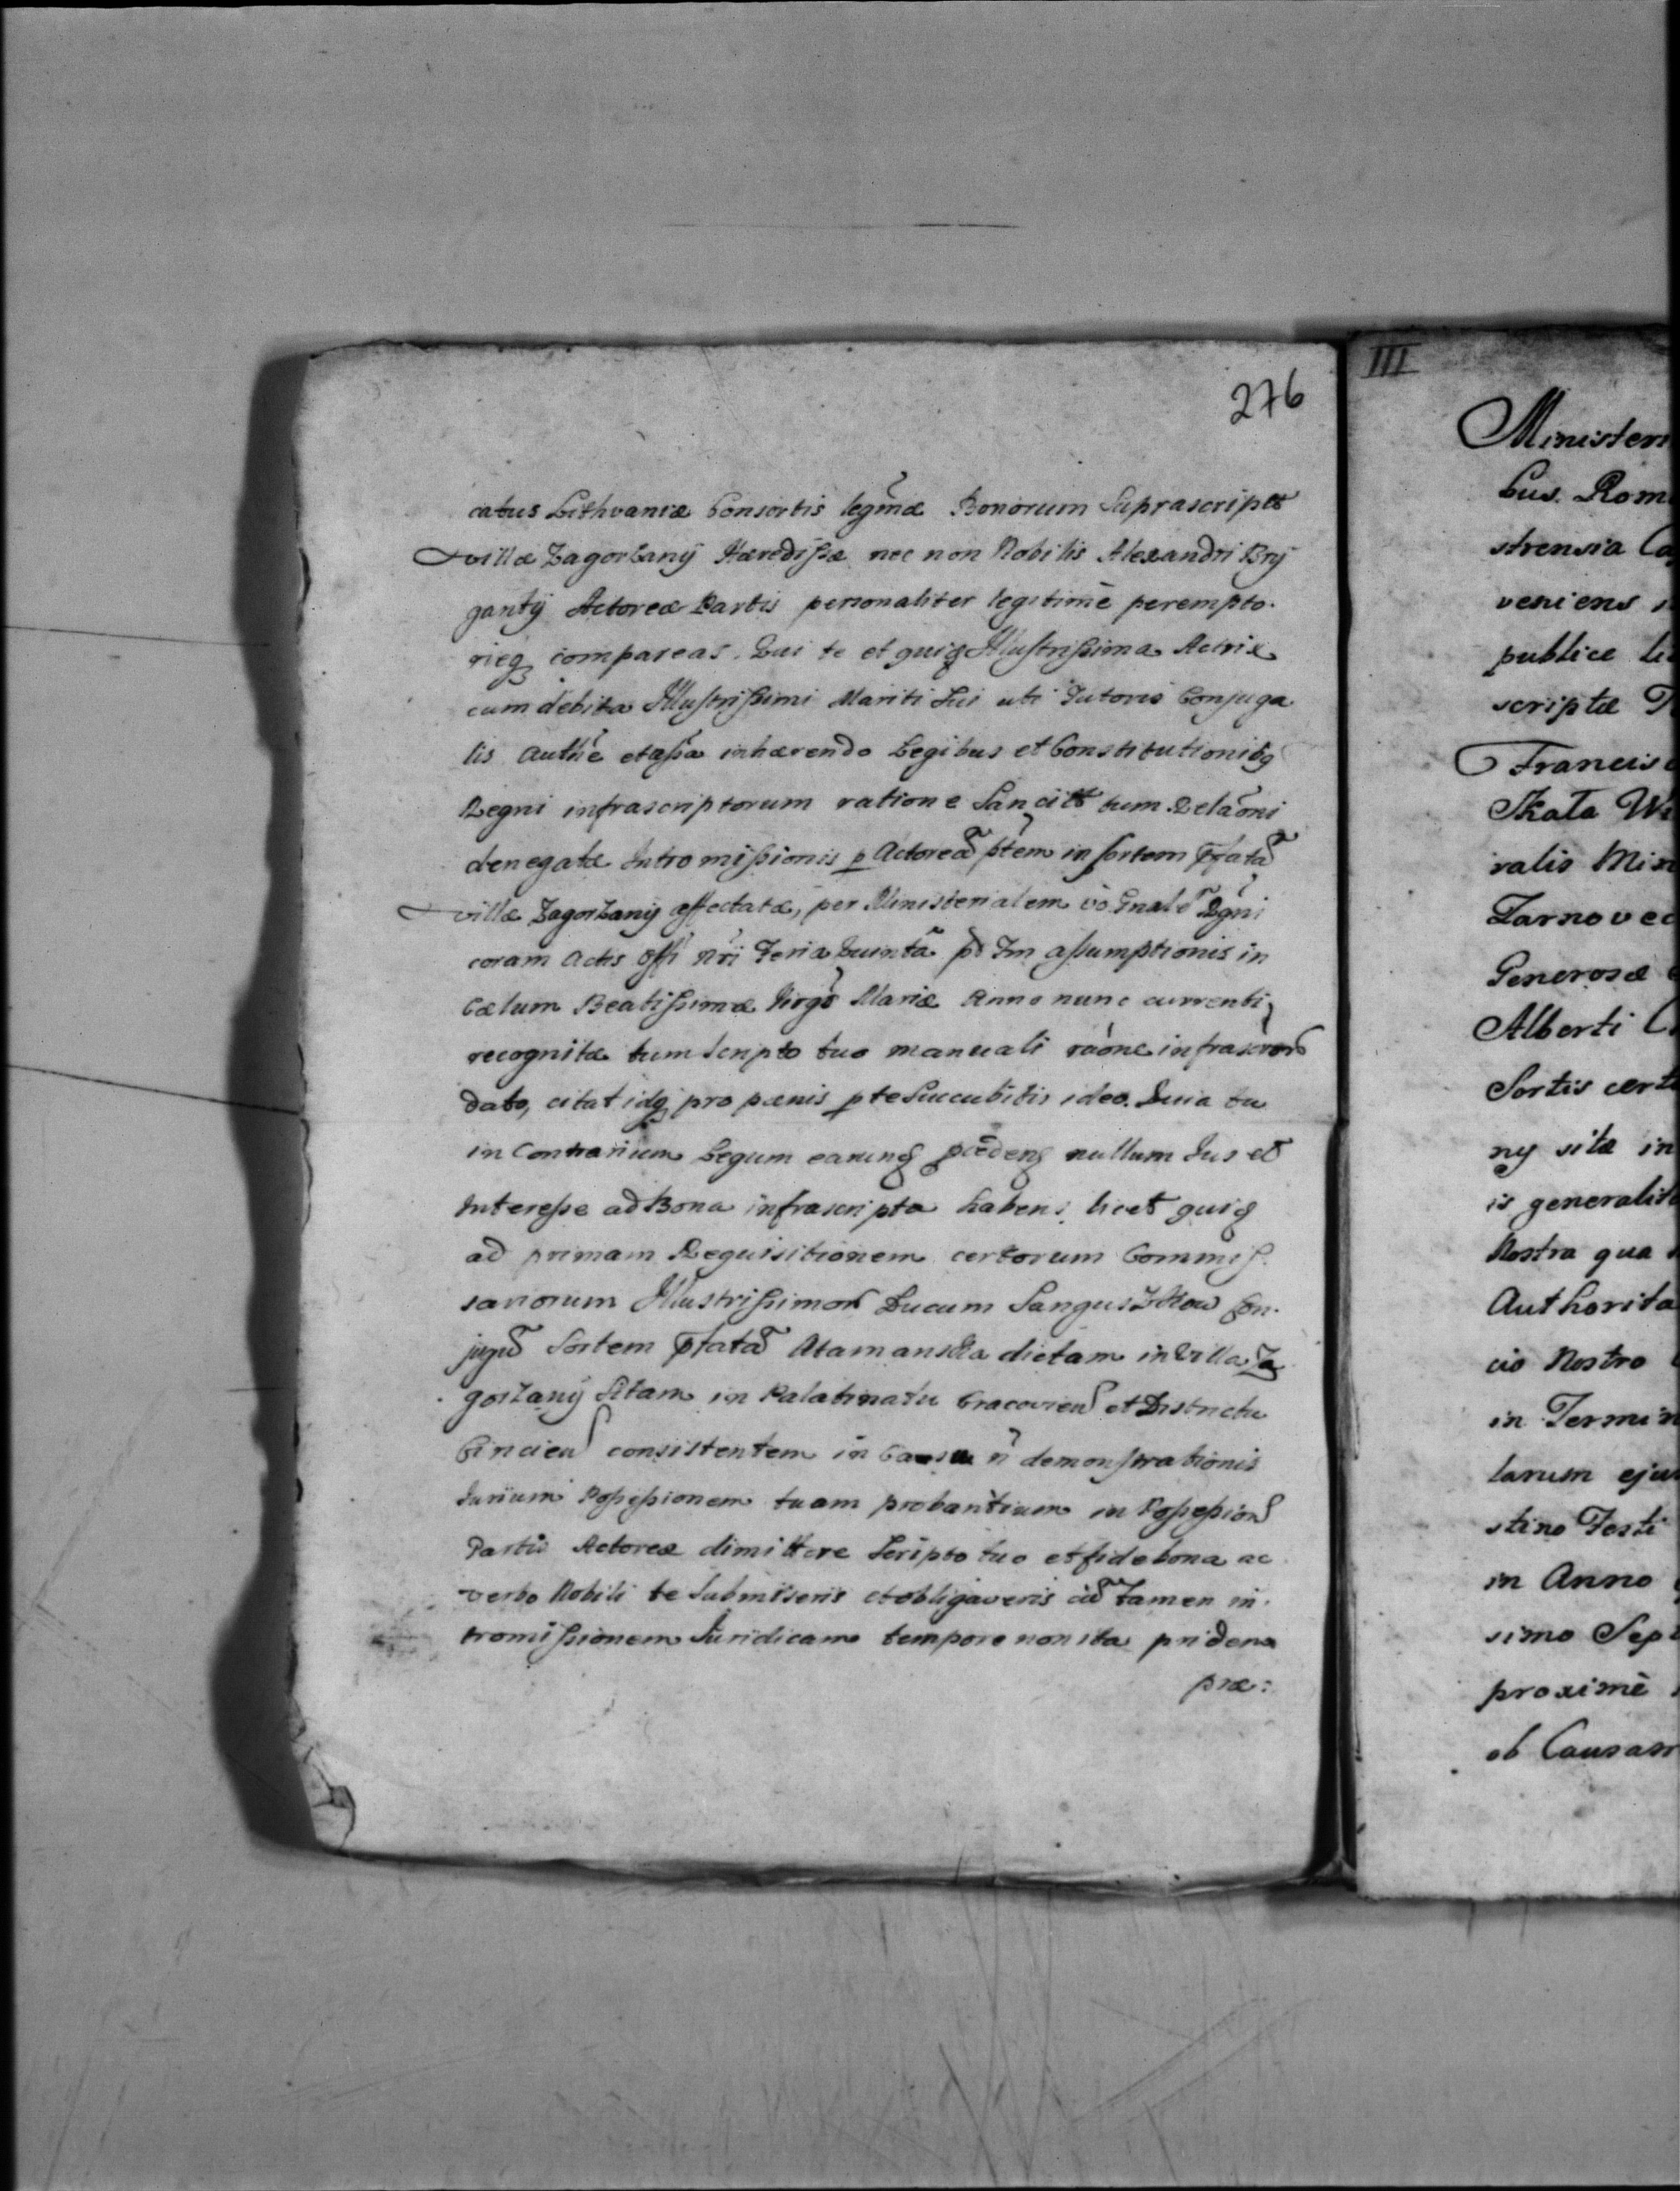 276
catus Lithvaniæ Consortis legmæ Bonorum Suprascriptt
villæ Zagorzany Hæredissæ nec non Nobilis Alexandri Bry
ganty Actoreæ Partis personaliter legitimè perempto.
rieq compareas. Qui te et quiq Illustrissima Actrix
cum debita Illustrissimi Mariti Sui uti Tutoris Conjuga
lis Authe et assa inhærendo Legibus et Constitutionibq
Regni infrascriptorum ratione Sancitt tum Relaoni
denegatæ Intromissionis p Actoreã ptem in sortem pfatã
villæ Zagorzany affectatæ, per Ministerialem Gnalẽ Rgni
coram Actis Offi nri Feria Quinta pd Fm assumptionis in
Cælum Beatissimæ Virgs Mariæ Anno nunc currenti
recognitæ tum Scripto tuo manuali raone infrascror
dato, citat idq pro pænis p te Succubitis ideo. Quia tu
in Contrarium Legum earunq nullum Jus et
Interesse ad Bona infrascripta habens, licet quiq
ad primam Requisitionem certorum Commis.
sariorum Illustrissimor Ducum Sanguszkow Con.
jugũ Sortem pfatã Atamanska dictam in Villa Za
gorzany Sitam in Palatinatu Cracovien et Districtu
consistentem in Casu n demonstrationis
Jurium Possessionem tuam probantium in Possession
Partis Actoreæ dimittere Scripto tuo et fide bona ac
verbo Nobili te Submiseris et obligaveris tamen in.
tromissionem Juridicam tempore non ita pridem
præ:
III
Ministeri
bus. Rom
strensia Ca
veniens
publice li
scriptæ T
Francis
Skała Wi
ralis Min
Tarnovec
Generosæ
Alberti C
Sortis cert
ny sitæ in
is generalit
Nostra qua
Authorita
cio Nostro
in Termin
larum ejus
stino Festi
in Anno
simo Sept
proximè
ob Causam